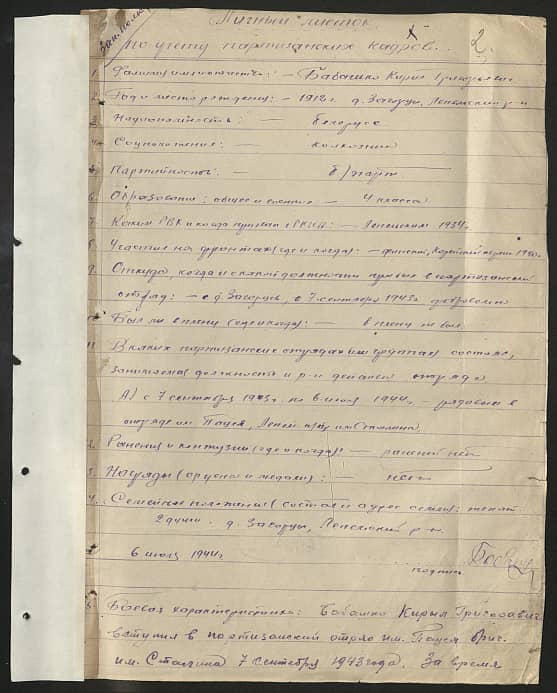 Личный листок
по учету партизанских кадров.
2.
1. Фамилия имя отчеств: – Бабашко Кирил Григорьевич
2. Год и место рождения: – 1912 г. д. Загорцы, Лепельский р-н
3. Национальность: – белорус
4. Соцположение: – колхозник
5. Партийность: – б/парт
6. Образование: общее и – 4 класса
7. Каким РВК и когда призван в РККА: – Лепельским 1934 г.
8. Участие на фронтах (где и когда): – финский,
9. Откуда, когда и с какой должности прибыл в партизанский
отряд: – с д. Загорцы, с 7 сентября 1943 г. добровольно
Был ли в плену (где и когда): – в плену не был.
11. В каких партизанских отрядах или бригадах состоял,
занимаемая должность и р-н действия отряда
А) с 7 сентября 1943 г. по 6 июля 1944 г. – рядовым в
отряде им.
2. Ранения и контузии (где и когда) – ранений нет
3. Награды (ордена и медали): – нет
4. Семейное положение (состав и адрес семьи): женат
2 души. д. Загорцы, р-н.
6 июля 1944 г.
подпись
5. Боевая характеристика: Бабашко Кирыл Григорович
вступил в партизанский отряд им. бриг.
им. Сталина 7 сентября 1943 года. За время